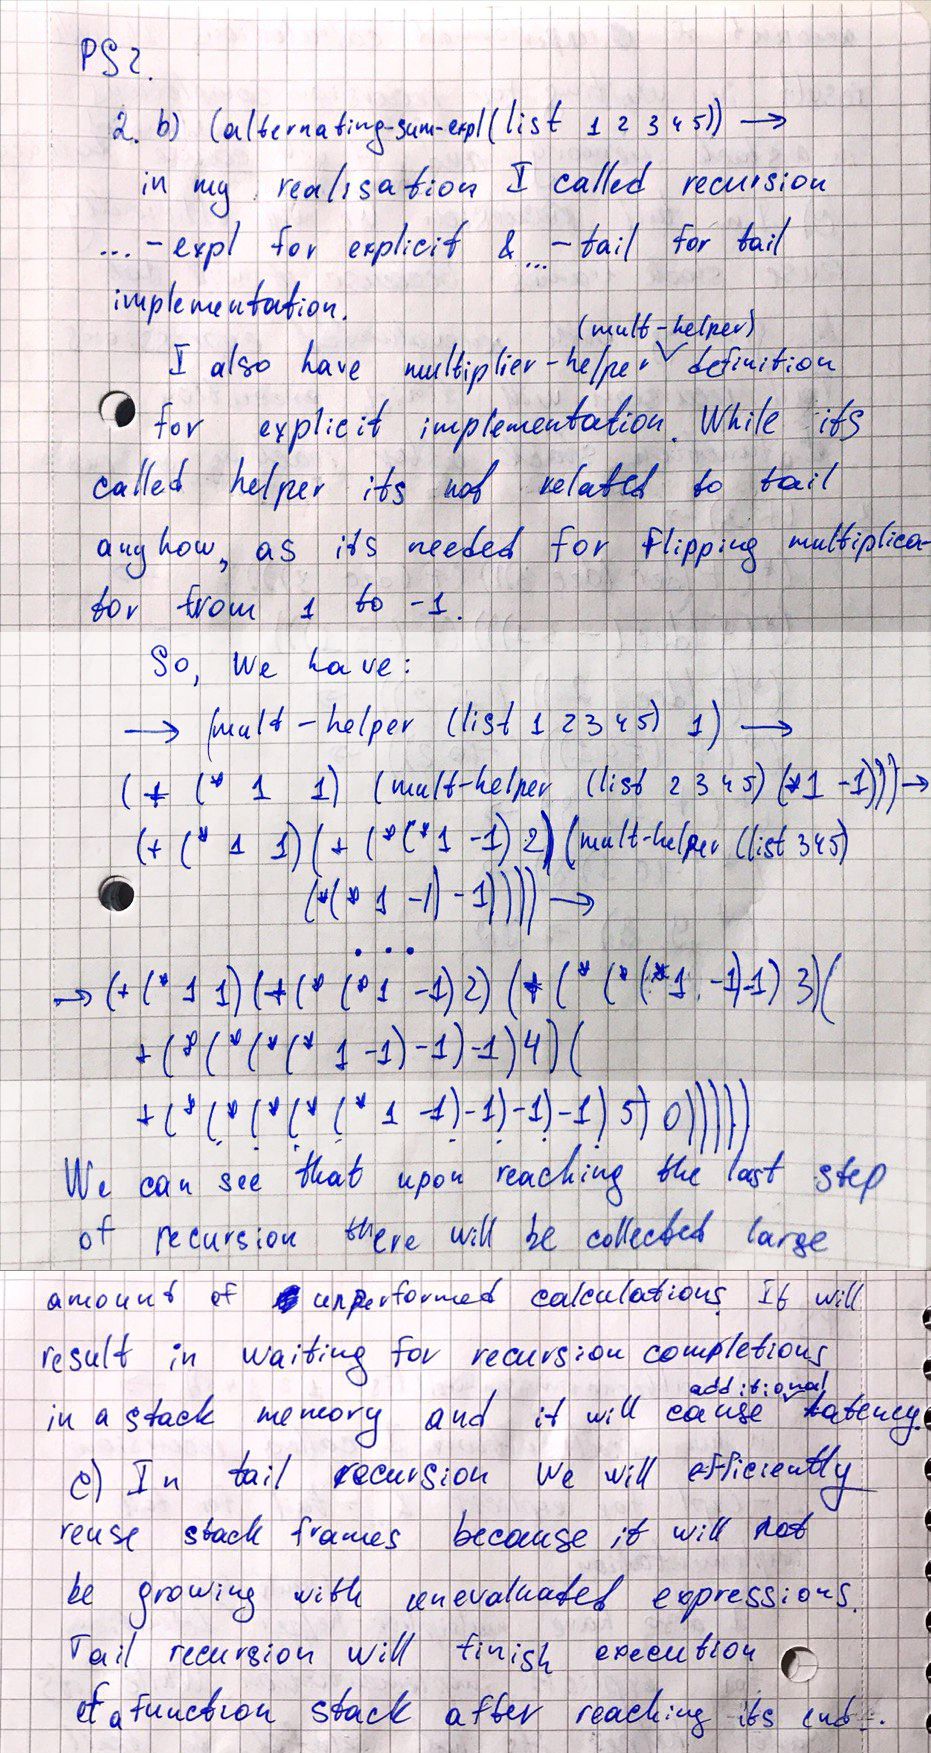 PS2.
2. b) (alternating-sum-expl(list 1 2 3 4 5)) →
in my realisation I called recursion
... -expl for explicit & ... -tail for tail
implementation.
(mult-helper)
I also have multiplier-helper ∨ definition
for explicit implementation. While its
called helper its not related to tail
anyhow, as its needed for flipping multiplica-
tor from 1 to -1.
So, We have:
→ (mult-helper (list 1 2 3 4 5) 1) →
(+ (* 1 1) (mult-helper (list 2 3 4 5) (*1 -1))) →
(+ (* 1 1) (+ (*(*1 -1) 2) (mult-helper (list 3 4 5)
(*(* 1 -1) -1)))) →
...
→ (+ (* 1 1) (+ (* (*1 -1) 2) (+ (* (* (*1 -1) -1) 3) (
+ (* (* (* (* 1 -1) -1) -1) 4) (
+ (* (* (* (* (* 1 -1) -1) -1) -1) 5) 0)))))
We can see that upon reaching the last step
of recursion there will be collected large
amount of unperformed calculations. It will
result in waiting for recursion completions
additional
in a stack memory and it will cause ∨ latency.
c) In tail recursion We will efficiently
reuse stack frames because it will not
be growing with unevaluated expressions.
Tail recursion will finish execution
of a function stack after reaching its end.